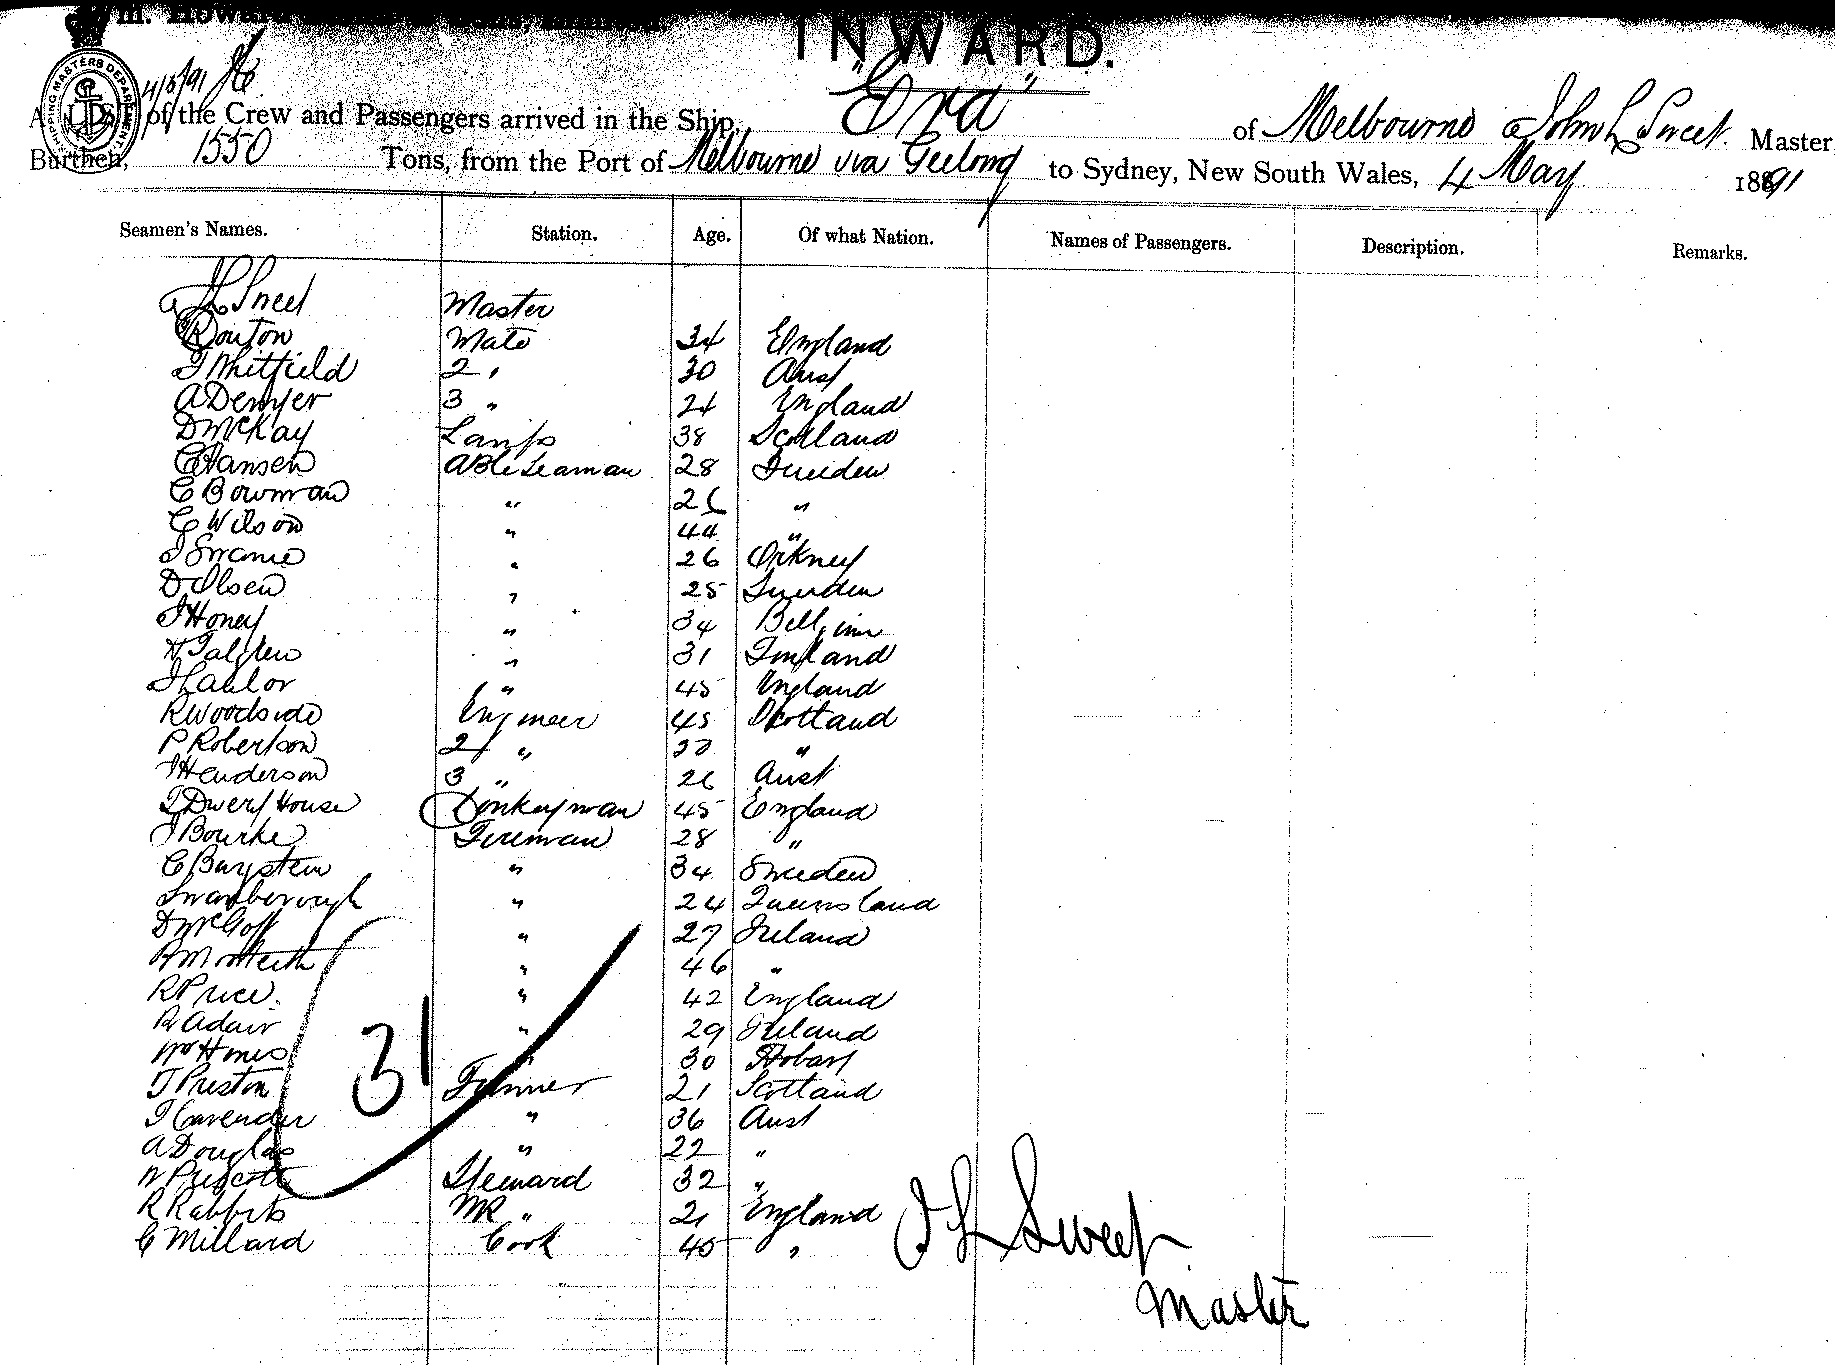 INWARD.
SHIPPING MASTERS DEPARTMENT
4/5/91
A LIST of the Crew and Passengers arrived in the Ship, "Era" of Melbourne John L Sweet. Master
Burthen, 1550 Tons, from the Port of Melbourne via Geelong to Sydney, New South Wales, 4 May 1891
Seamen's Names. Station. Age. Of what Nation. Names of Passengers. Description. Remarks.
J L Sweet Master
Routon Mate 34 England
T Whitfield 2 " 30 Aust
A Denyer 3 " 24 England
D McKay Lamps 38 Scotland
C Hansen Able Seaman 28 Sweden
C Bowman " 26 "
C Wilson " 44 "
J Swanie " 26 Orkney
D Olsen " 25 Sweden
J Honey " 34 Belgium
" 31 Finland
J Lawlor " 45 England
R Woodside Engineer 45 Scotland
P Robertson 2 " 30 "
J Henderson 3 " 26 Aust
T Dwery House Donkeyman 45 England
J Bourke Fireman 28 "
C Baystein " 34 Sweden
Swanborough " 24 Queensland
D McGoff " 27 Ireland
R Monteith " 46 "
R Price. " 42 England
R Adair " 29 Ireland
Wm Hines " 30 Hobart
T Preston Trimmer 21 Scotland
J Cavender " 36 Aust
A Douglas " 22 "
W Prescott Steward 32 "
R Rabbits " 21 England
C Millard Cook 45 "
31
J L Sweet
Master